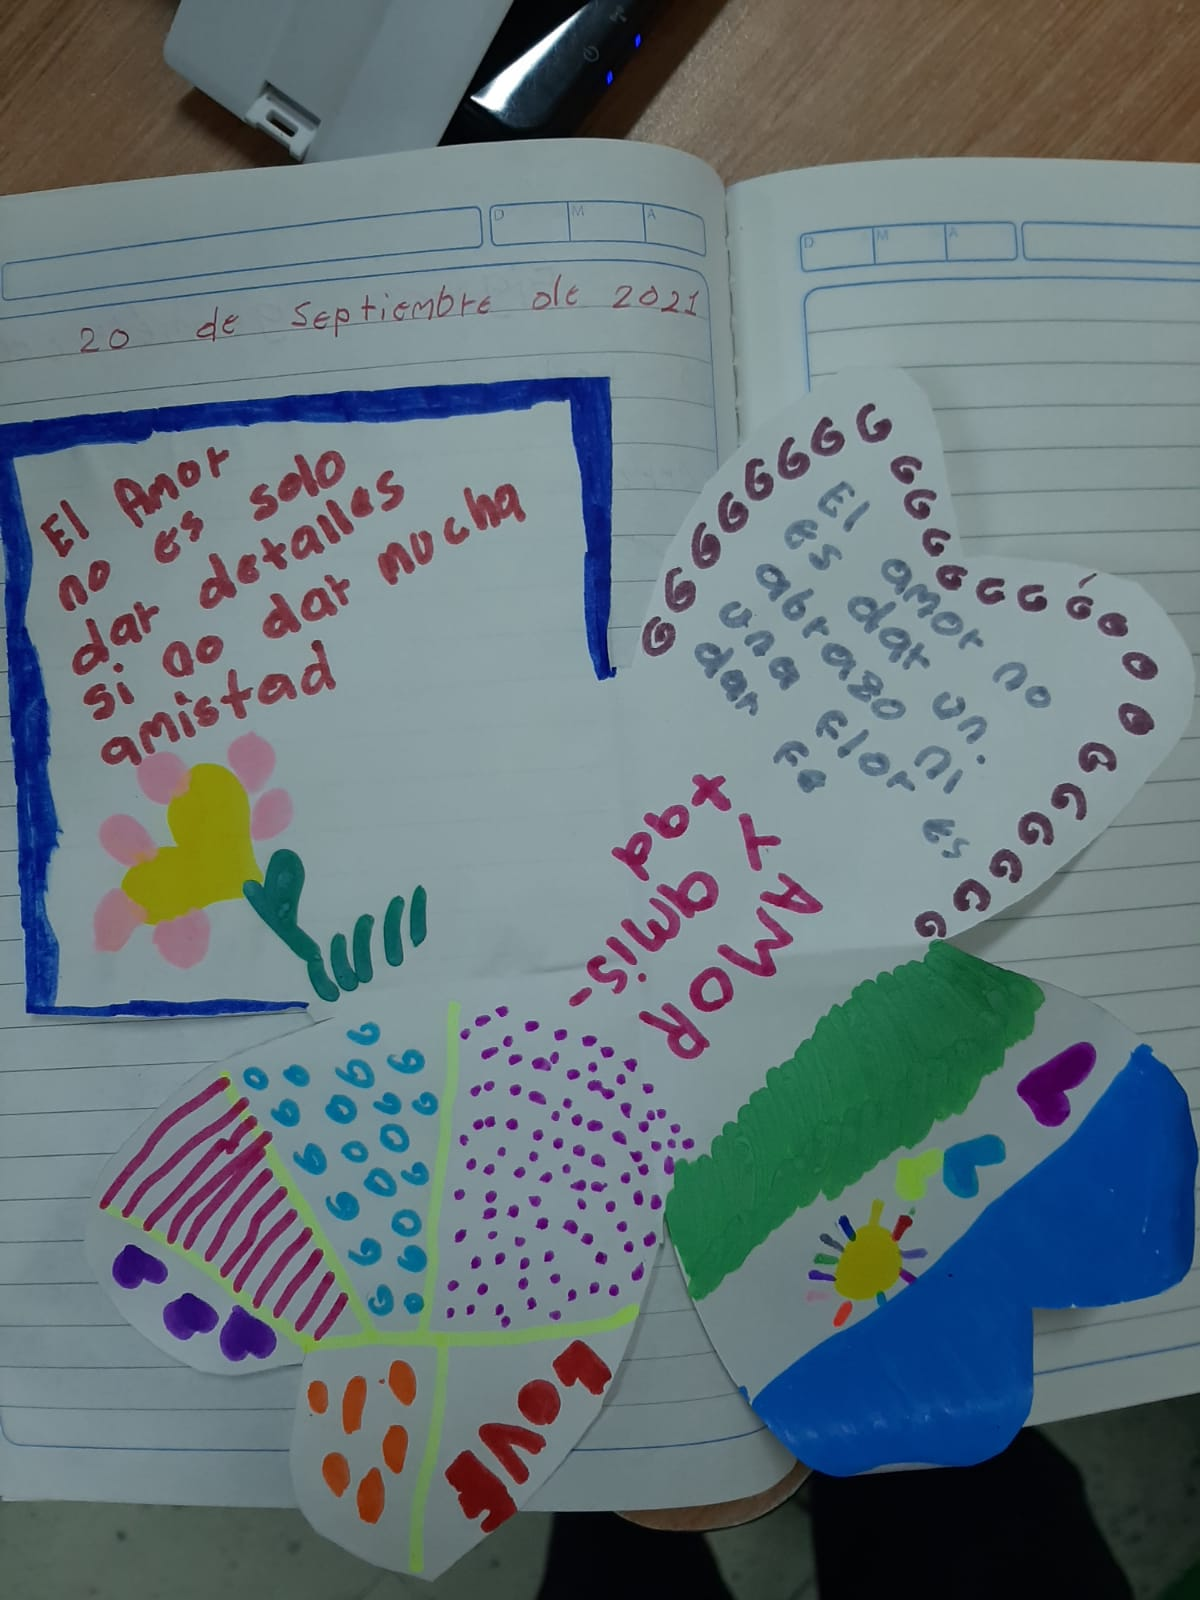 D M A
D M A
20 de Septiembre de 2021
El Amor
no es solo
dar detalles
si no dar mucha
amistad
El amor no
es dar un
abrazo ni
una flor es
dar Fe
Y AMOR
amis-
+ad
LOVE